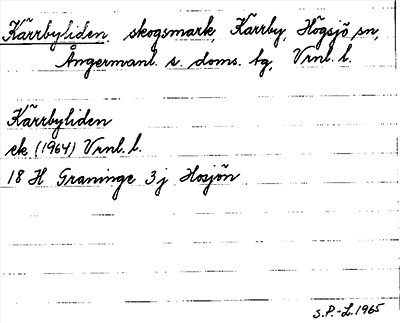 Kärrbyliden, skogsmark, Kärrby, Högsjö sn,
Ångermanl. s. doms. tg, Vrnl. l.
Kärrbyliden
ek (1964) Vrnl. l.
18 H Graninge 3j Hosjön
S.P.-L. 1965